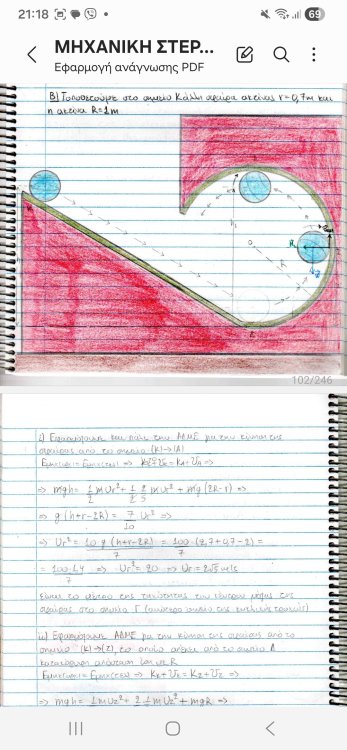 21:18
69
ΜΗΧΑΝΙΚΗ ΣΤΕΡ...
Εφαρμογή ανάγνωσης PDF
Β) Τοποθετούμε στο σημείο Κ άλλη σφαίρα ακτίνας r=0,7m και
η ακτίνα R=1m
R
R
102/246
i) Εφαρμόζουμε και πάλι την ΑΔΜΕ για την κίνηση της
σφαίρας από το σημείο (Κ)→(Α)
⇒ mgh = 1/2 mυr² + 1/2 2/5 mυr² + mg(2R-r) ⇒
⇒ g(h+r-2R) = 7/10 υr² ⇒
⇒ υr² = 10g(h+r-2R)/7 = 100(2,7+0,7-2)/7 =
= 100·1,4/7 ⇒ υr² = 20 ⇒ υr = 2√5 m/s
είναι το μέτρο της ταχύτητας του κέντρου μάζας της
σφαίρας στο σημείο Γ (ανώτερο σημείο της κυκλικής τροχιάς)
ii) Εφαρμόζουμε ΑΔΜΕ για την κίνηση της σφαίρας από το
σημείο (Κ)→(Ζ), το οποίο απέχει από το σημείο Δ
κατακόρυφη απόσταση ίση με R